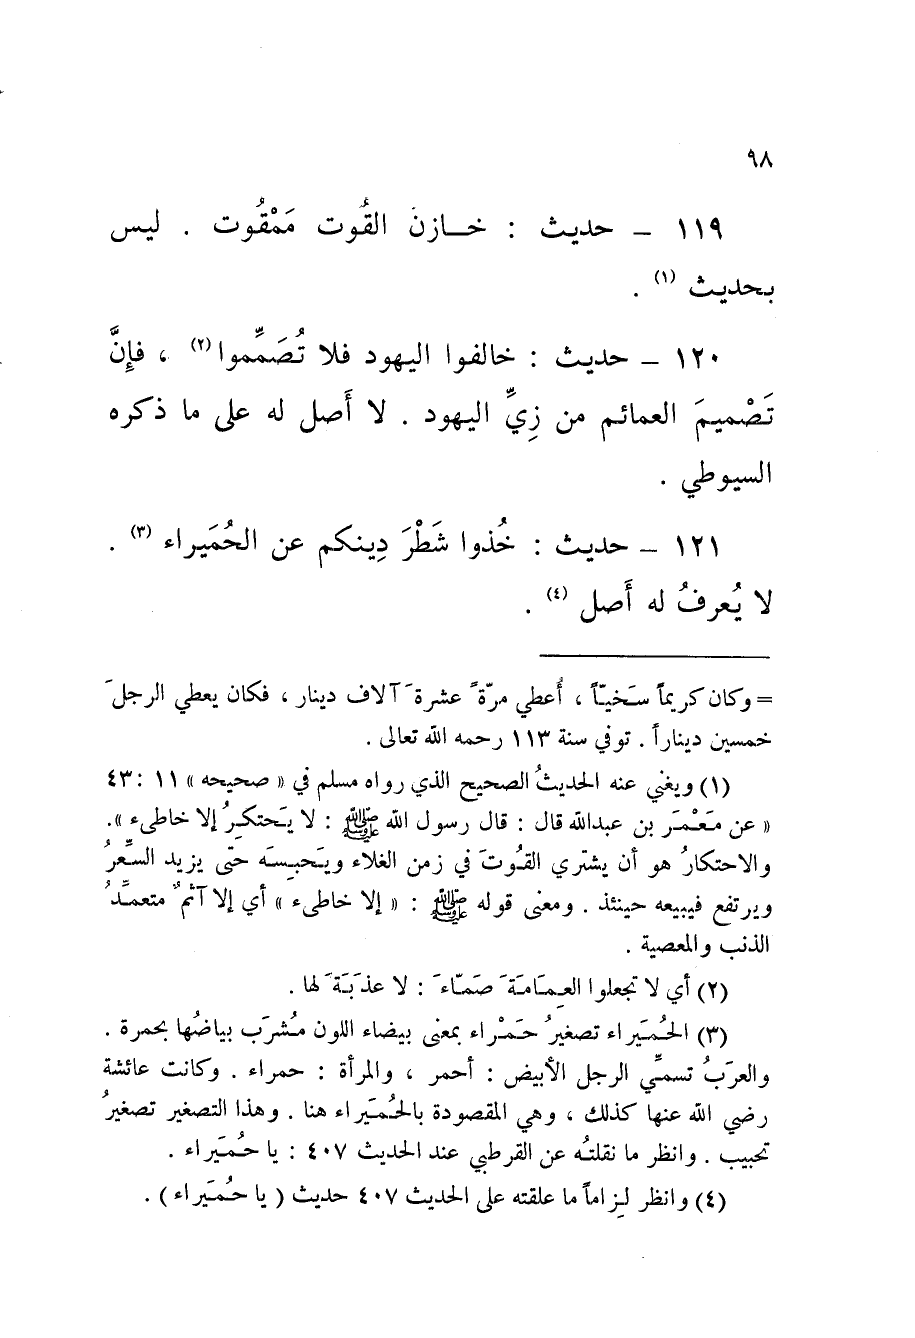 ٩٨
١١٩ - حديث : خــازنُ القُوت مَمْقُوت . ليس
بحديث (١) .
١٢٠ - حديث : خالفوا اليهود فلا تُصَمِّموا (٢) ، فإِنَّ
تَصْميمَ العمائم من زِيِّ اليهود . لا أَصل له على ما ذكره
السيوطي .
١٢١ - حديث : خُذوا شَطْرَ دِينكم عن الحُمَيراء (٣) .
لا يُعرفُ له أَصل (٤) .
= وكان كريماً سَخيّاً ، أُعطي مرّةً عشرةَ آلاف دينار ، فكان يعطي الرجلَ
خمسين ديناراً . توفي سنة ١١٣ رحمه الله تعالى .
(١) ويغني عنه الحديثُ الصحيح الذي رواه مسلم في « صحيحه » ١١ : ٤٣
« عن مَعْمَر بن عبدالله قال : قال رسول الله ﷺ : لا يَحتكرُ إلا خاطىء » .
والاحتكارُ هو أن يشتري القُوتَ في زمن الغلاء ويَحبِسَه حتى يزيد السِّعرُ
ويرتفع فيبيعه حينئذ . ومعنى قوله ﷺ : « إلا خاطىء » أي إلا آثمٌ متعمِّدُ
الذنب والمعصية .
(٢) أي لا تجعلوا العِمَامَةَ صَمّاءَ : لا عذَبَةَ لها .
(٣) الحُمَيراء تصغيرُ حَمْراء بمعنى بيضاء اللون مُشرَب بياضُها بحمرة .
والعرَبُ تسمِّي الرجل الأبيض : أحمر ، والمرأة : حمراء . وكانت عائشة
رضي الله عنها كذلك ، وهي المقصودة بالحُمَيراء هنا . وهذا التصغير تصغيرُ
تحبيب . وانظر ما نقلتُه عن القرطبي عند الحديث ٤٠٧ : يا حُمَيراء .
(٤) وانظر لِزاماً ما علقته على الحديث ٤٠٧ حديث ( يا حُمَيراء ) .